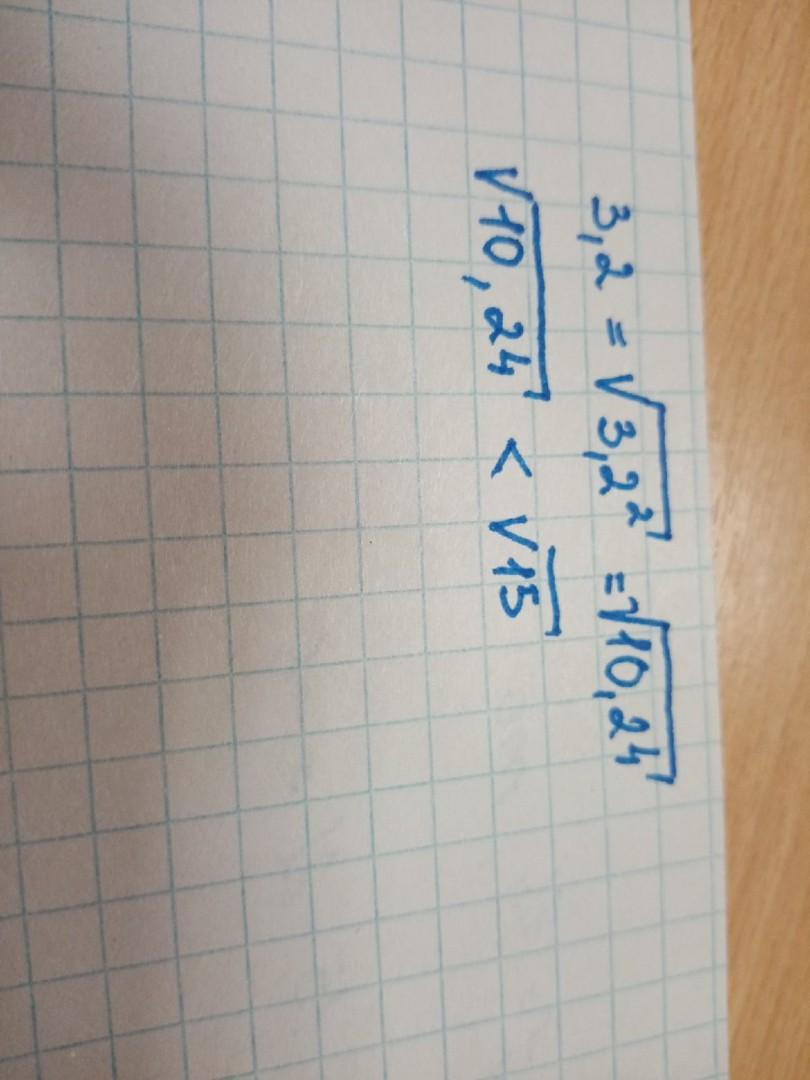 3,2 = √3,2² = √10,24
√10,24 < √15